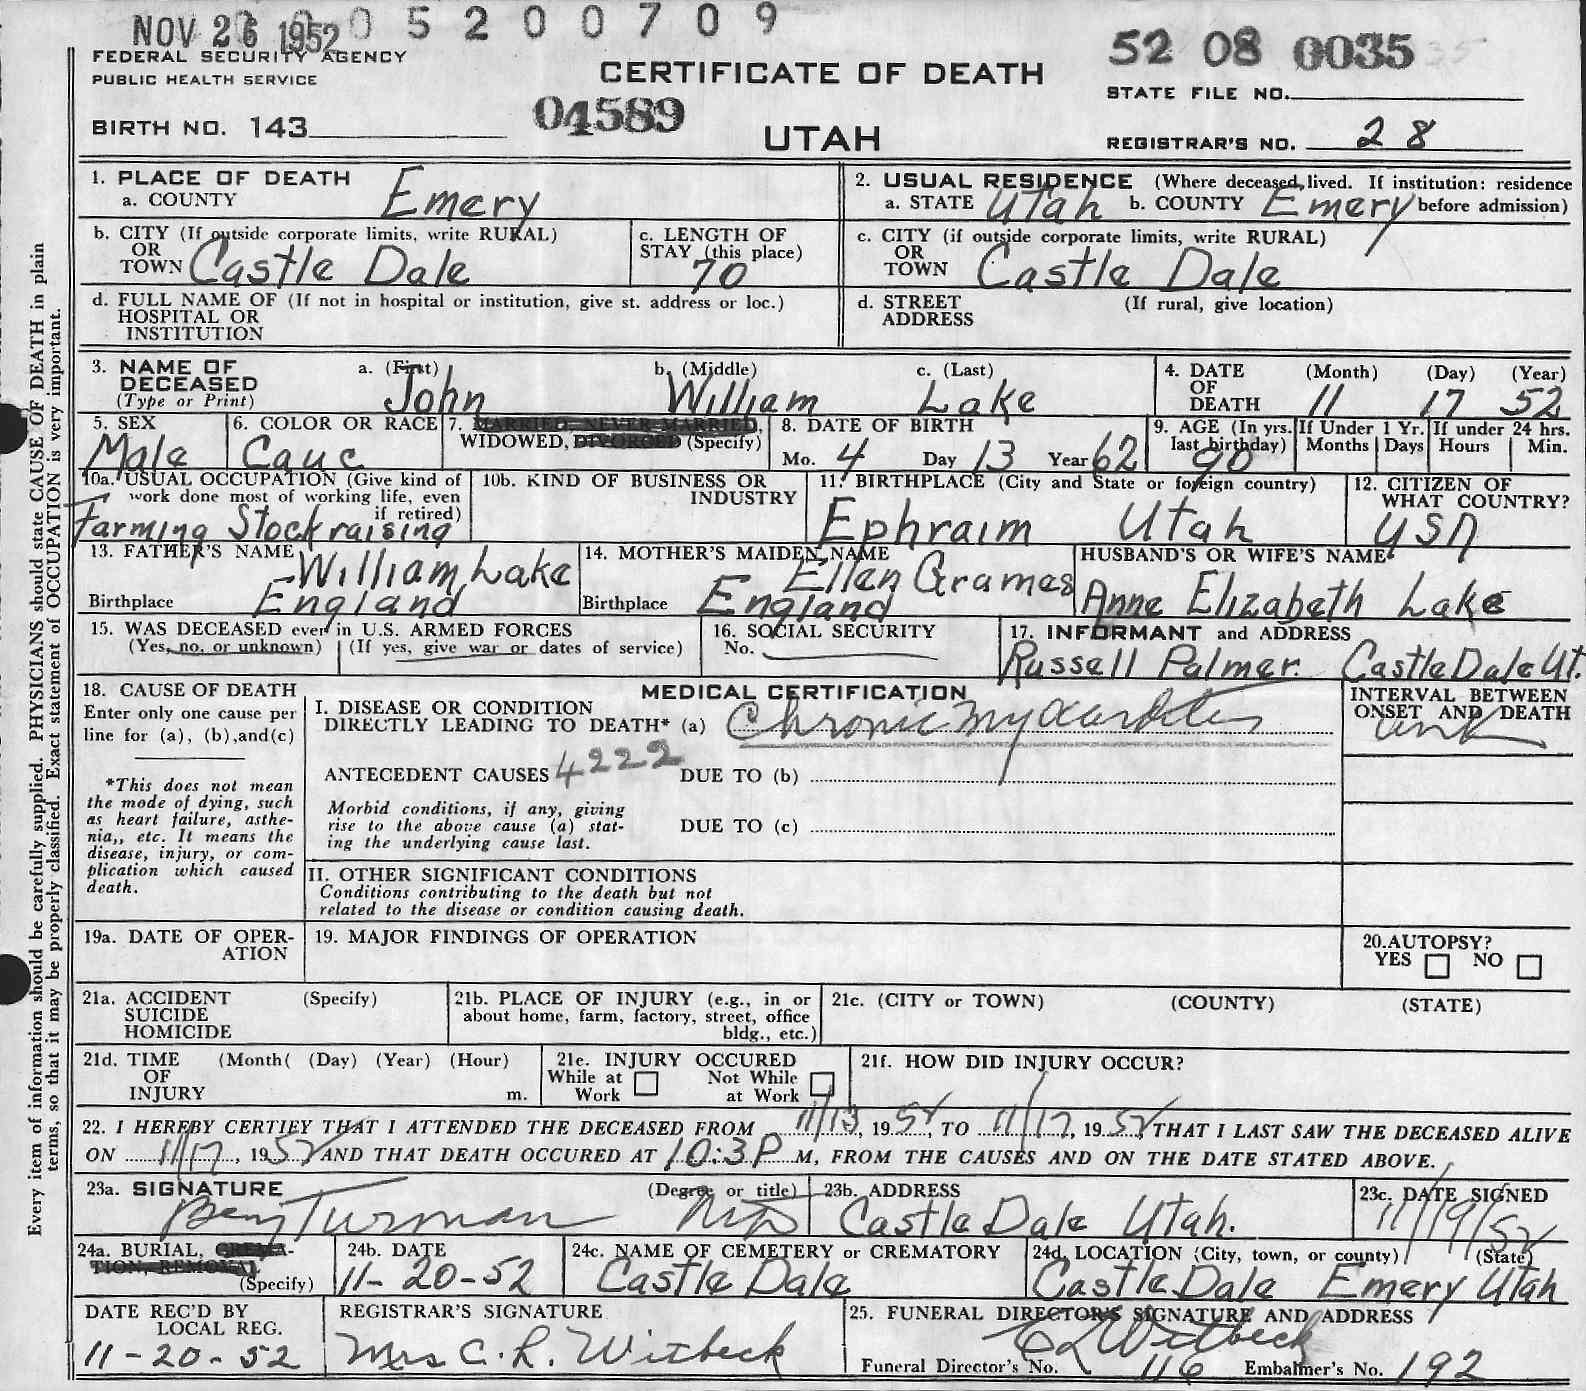 NOV 26 1952 0 5 2 0 0 7 0 9
FEDERAL SECURITY AGENCY
PUBLIC HEALTH SERVICE
CERTIFICATE OF DEATH
52 08 0035
STATE FILE NO.
BIRTH NO. 143
04589
UTAH
REGISTRAR'S NO. 28
1. PLACE OF DEATH
a. COUNTY Emery
2. USUAL RESIDENCE (Where deceased lived. If institution: residence
a. STATE Utah b. COUNTY Emery before admission)
b. CITY (If outside corporate limits, write RURAL)
OR
TOWN Castle Dale
c. LENGTH OF
STAY (this place)
70
c. CITY (if outside corporate limits, write RURAL)
OR
TOWN Castle Dale
d. FULL NAME OF (If not in hospital or institution, give st. address or loc.)
HOSPITAL OR
INSTITUTION
d. STREET (If rural, give location)
ADDRESS
3. NAME OF
DECEASED
(Type or Print)
a. (First) b. (Middle) c. (Last)
John William Lake
4. DATE (Month) (Day) (Year)
OF
DEATH 11 17 52
5. SEX
Male
6. COLOR OR RACE
Cauc
7. MARRIED, NEVER MARRIED,
WIDOWED, DIVORCED (Specify)
8. DATE OF BIRTH
Mo. 4 Day 13 Year 62
9. AGE (In yrs.
last birthday)
90
If Under 1 Yr.
Months Days
If under 24 hrs.
Hours Min.
10a. USUAL OCCUPATION (Give kind of
work done most of working life, even
if retired)
Farming Stockraising
10b. KIND OF BUSINESS OR
INDUSTRY
11. BIRTHPLACE (City and State or foreign country)
Ephraim Utah
12. CITIZEN OF
WHAT COUNTRY?
USA
13. FATHER'S NAME
William Lake
Birthplace England
14. MOTHER'S MAIDEN NAME
Ellen Grames
Birthplace England
HUSBAND'S OR WIFE'S NAME
Anne Elizabeth Lake
15. WAS DECEASED ever in U.S. ARMED FORCES
(Yes, no. or unknown) (If yes, give war or dates of service)
16. SOCIAL SECURITY
No.
17. INFORMANT and ADDRESS
Russell Palmer. Castle Dale Ut.
18. CAUSE OF DEATH
Enter only one cause per
line for (a), (b),and(c)
*This does not mean
the mode of dying, such
as heart failure, asthe-
nia,, etc. It means the
disease, injury, or com-
plication which caused
death.
MEDICAL CERTIFICATION
I. DISEASE OR CONDITION
DIRECTLY LEADING TO DEATH* (a) Chronic Myocarditis
INTERVAL BETWEEN
ONSET AND DEATH
unk
ANTECEDENT CAUSES 4222 DUE TO (b)
Morbid conditions, if any, giving
rise to the above cause (a) stat-
ing the underlying cause last.
DUE TO (c)
II. OTHER SIGNIFICANT CONDITIONS
Conditions contributing to the death but not
related to the disease or condition causing death.
19a. DATE OF OPER-
ATION
19. MAJOR FINDINGS OF OPERATION
20.AUTOPSY?
YES NO
21a. ACCIDENT (Specify)
SUICIDE
HOMICIDE
21b. PLACE OF INJURY (e.g., in or
about home, farm, factory, street, office
bldg., etc.)
21c. (CITY or TOWN) (COUNTY) (STATE)
21d. TIME (Month( (Day) (Year) (Hour)
OF
INJURY m.
21e. INJURY OCCURED
While at Not While
Work at Work
21f. HOW DID INJURY OCCUR?
22. I HEREBY CERTIFY THAT I ATTENDED THE DECEASED FROM 11/13, 1952, TO 11/17, 1952, THAT I LAST SAW THE DECEASED ALIVE
ON 11/17, 1952 AND THAT DEATH OCCURED AT 10:3 P M, FROM THE CAUSES AND ON THE DATE STATED ABOVE.
23a. SIGNATURE (Degree or title)
Turman MD
23b. ADDRESS
Castle Dale Utah.
23c. DATE SIGNED
11/19/52
24a. BURIAL, CREMA-
TION, REMOVAL
(Specify)
24b. DATE
11-20-52
24c. NAME OF CEMETERY or CREMATORY
Castle Dale
24d. LOCATION (City, town, or county) (State)
Castle Dale Emery Utah
DATE REC'D BY
LOCAL REG.
11-20-52
REGISTRAR'S SIGNATURE
Mrs C. L. Witbeck
25. FUNERAL DIRECTOR'S SIGNATURE AND ADDRESS
C L Witbeck
Funeral Director's No. 116 Embalmer's No. 192
Every item of information should be carefully supplied. PHYSICIANS should state CAUSE OF DEATH in plain
terms, so that it may be properly classified. Exact statement of OCCUPATION is very important.